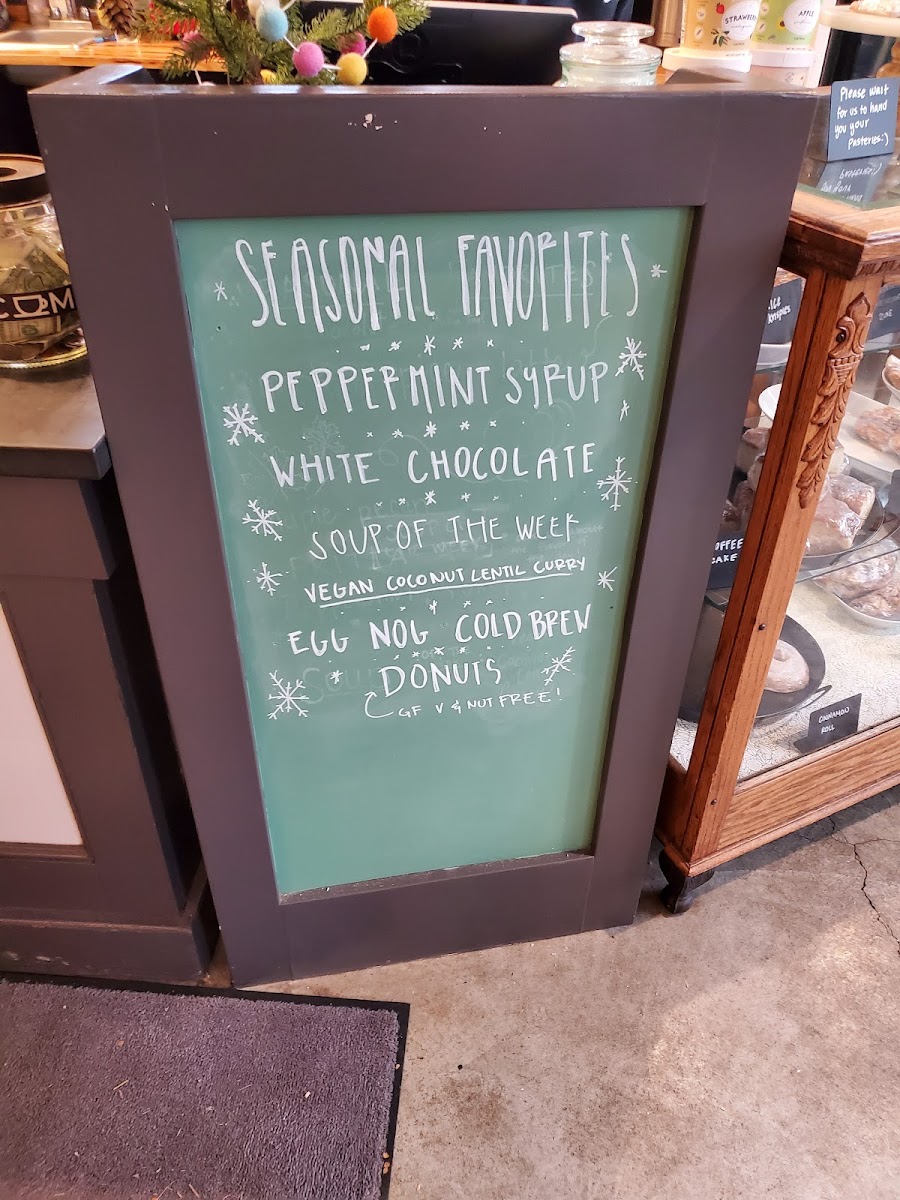 SEASONAL FAVORITES
PEPPERMINT SYRUP
WHITE CHOCOLATE
SOUP OF THE WEEK
VEGAN COCONUT LENTIL CURRY
EGG NOG COLD BREW
DONUTS
GF V & NUT FREE!
Please wait
for us to hand
you your
pasteries:)
STRAWBERRY
APPLE
COFFEE
CAKE
CINNAMON
ROLL